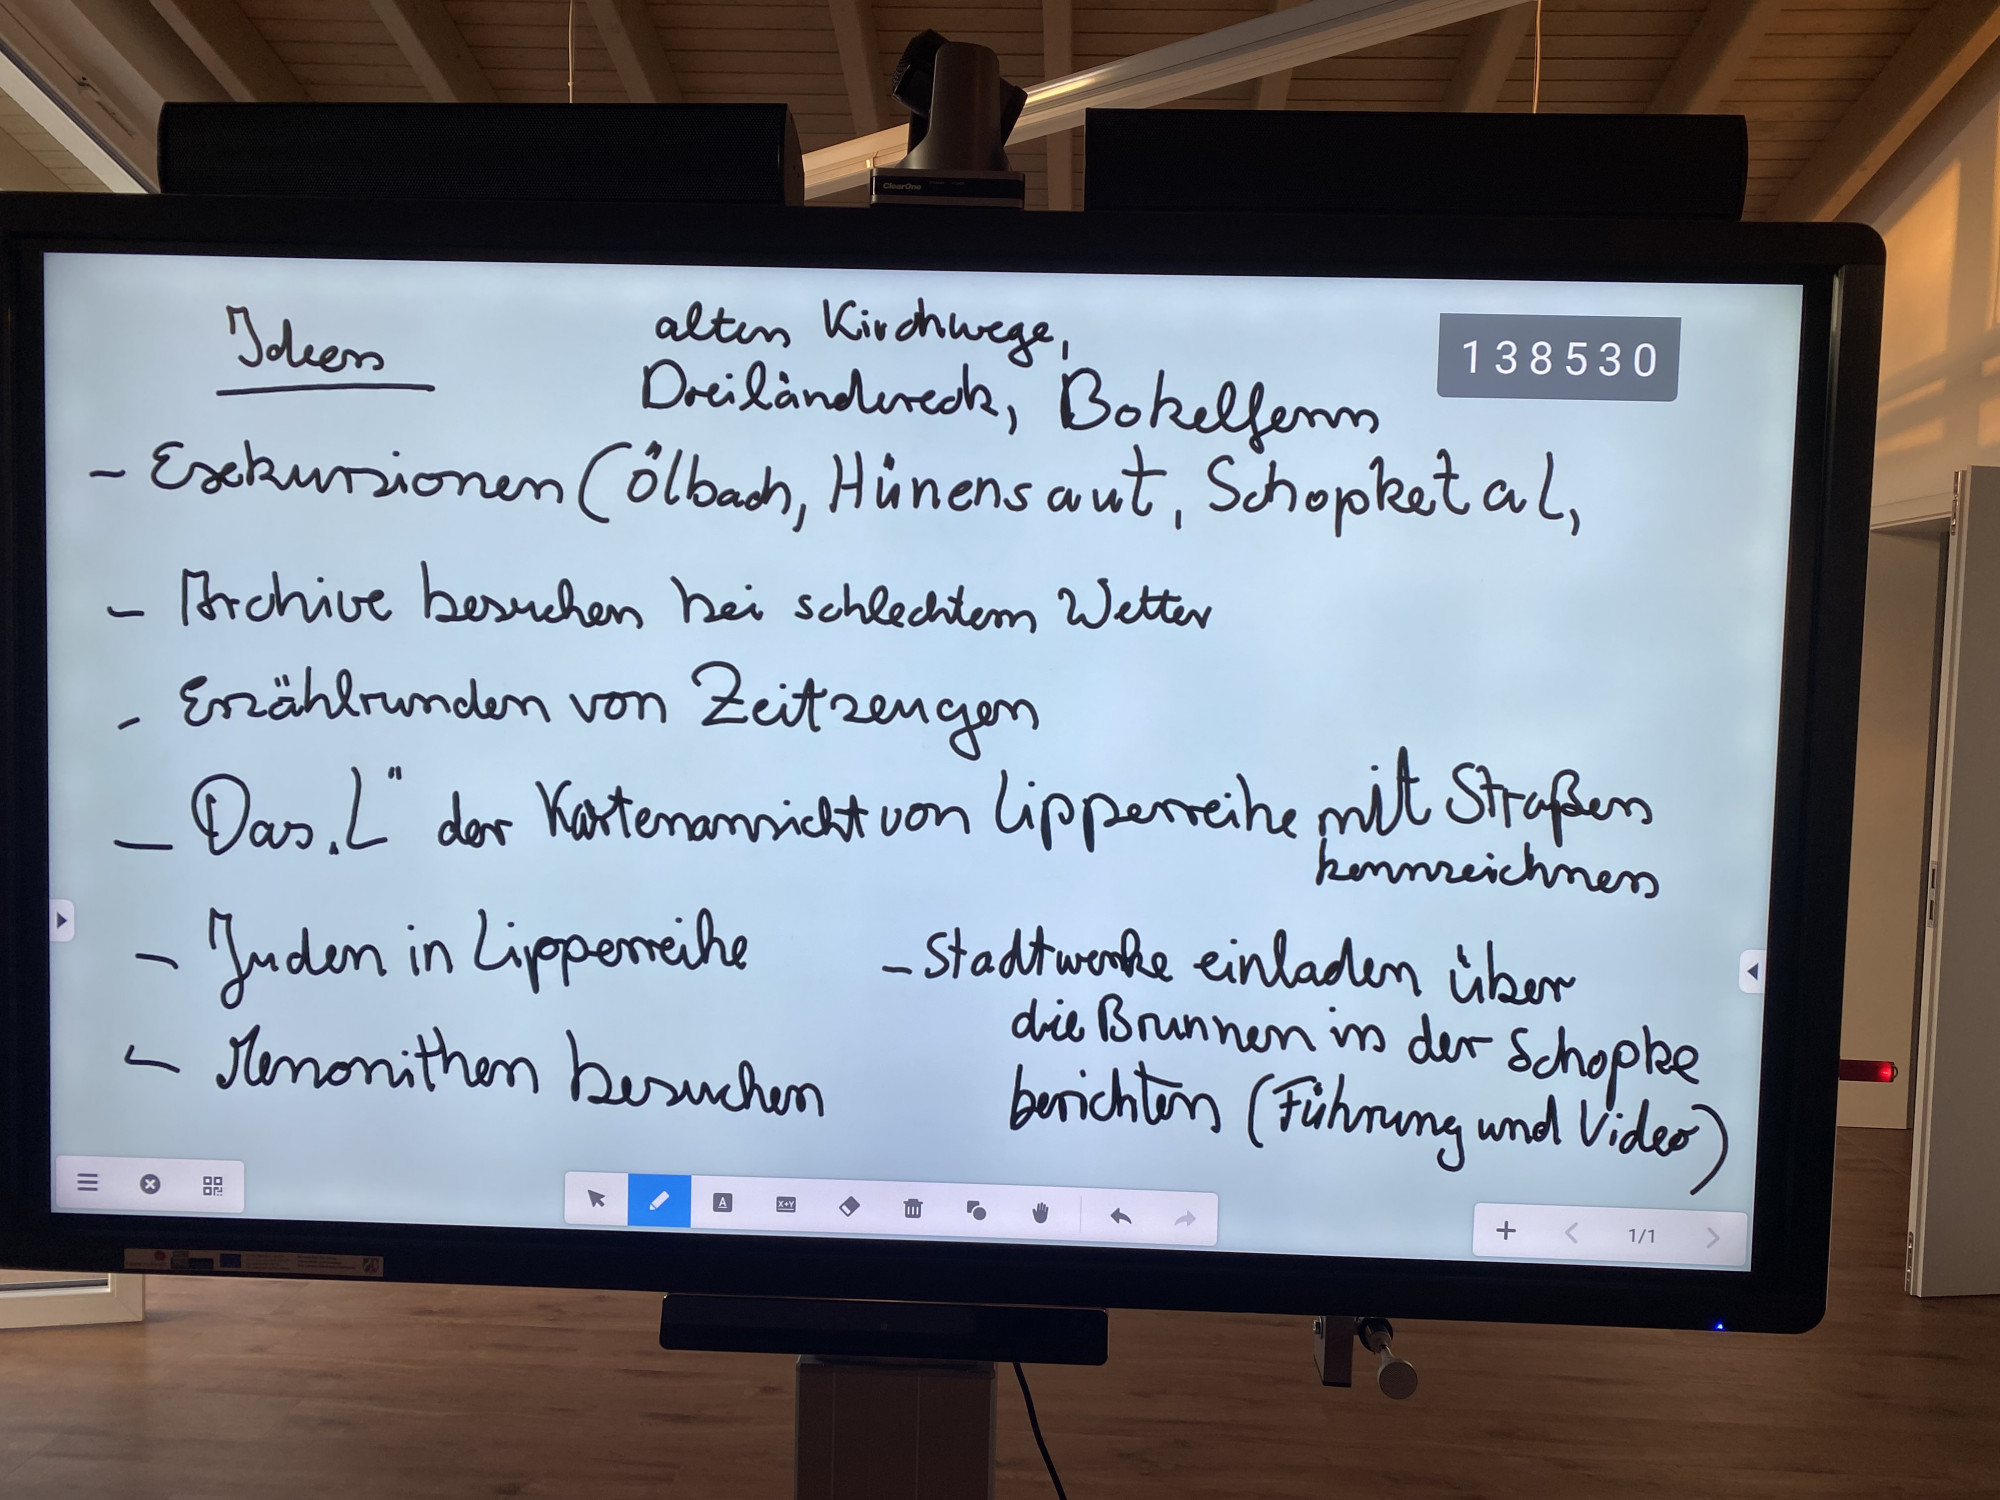 Ideen
alten Kirchwege,
Dreiländereck, Bokelfenn
138530
- Exkursionen (Ölbach, Hünensaut, Schopketal,
- Archive besuchen bei schlechtem Wetter
- Erzählrunden von Zeitzeugen
- Das „L" der Kartenansicht von Lipperreihe mit Straßen
kennzeichnen
- Juden in Lipperreihe
- Menonithen besuchen
- Stadtwerke einladen über
die Brunnen in der Schopke
berichten (Führung und Video)
1/1
ClearOne
A
X+Y